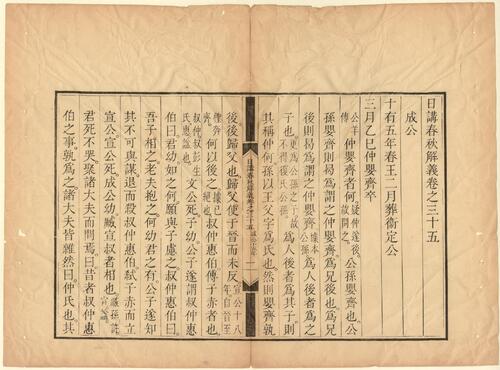 日講春秋解義卷之三十五
成公
十有五年春王二月葬衛定公
三月乙巳仲嬰齊卒
公羊傳仲嬰齊者何疑仲遂後故問之公孫嬰齊也公
孫嬰齊則曷爲謂之仲嬰齊爲兄後也爲兄
後則曷爲謂之仲嬰齊據本公孫爲人後者爲之
子也更爲公孫之子故不得復氏公孫爲人後者爲其子則
其稱仲何孫以王父字爲氏也然則嬰齊孰
日講春秋解義卷之三十五
後後歸父也歸父使于晉而未反宣公十八年自晉至
檉奔齊何以後之據已絕也叔仲惠伯傅子赤者也
叔仲彭生氏惠諡也文公死子幼公子遂謂叔仲惠
伯曰君幼如之何願與子慮之叔仲惠伯曰
吾子相之老夫抱之何幼君之有公子遂知
其不可與謀退而殺叔仲惠伯弑子赤而立
宣公宣公死成公幼臧宣叔者相也臧孫許宣諡
君死不哭聚諸大夫而問焉曰昔者叔仲惠
伯之事孰爲之諸大夫皆雜然曰仲氏也其